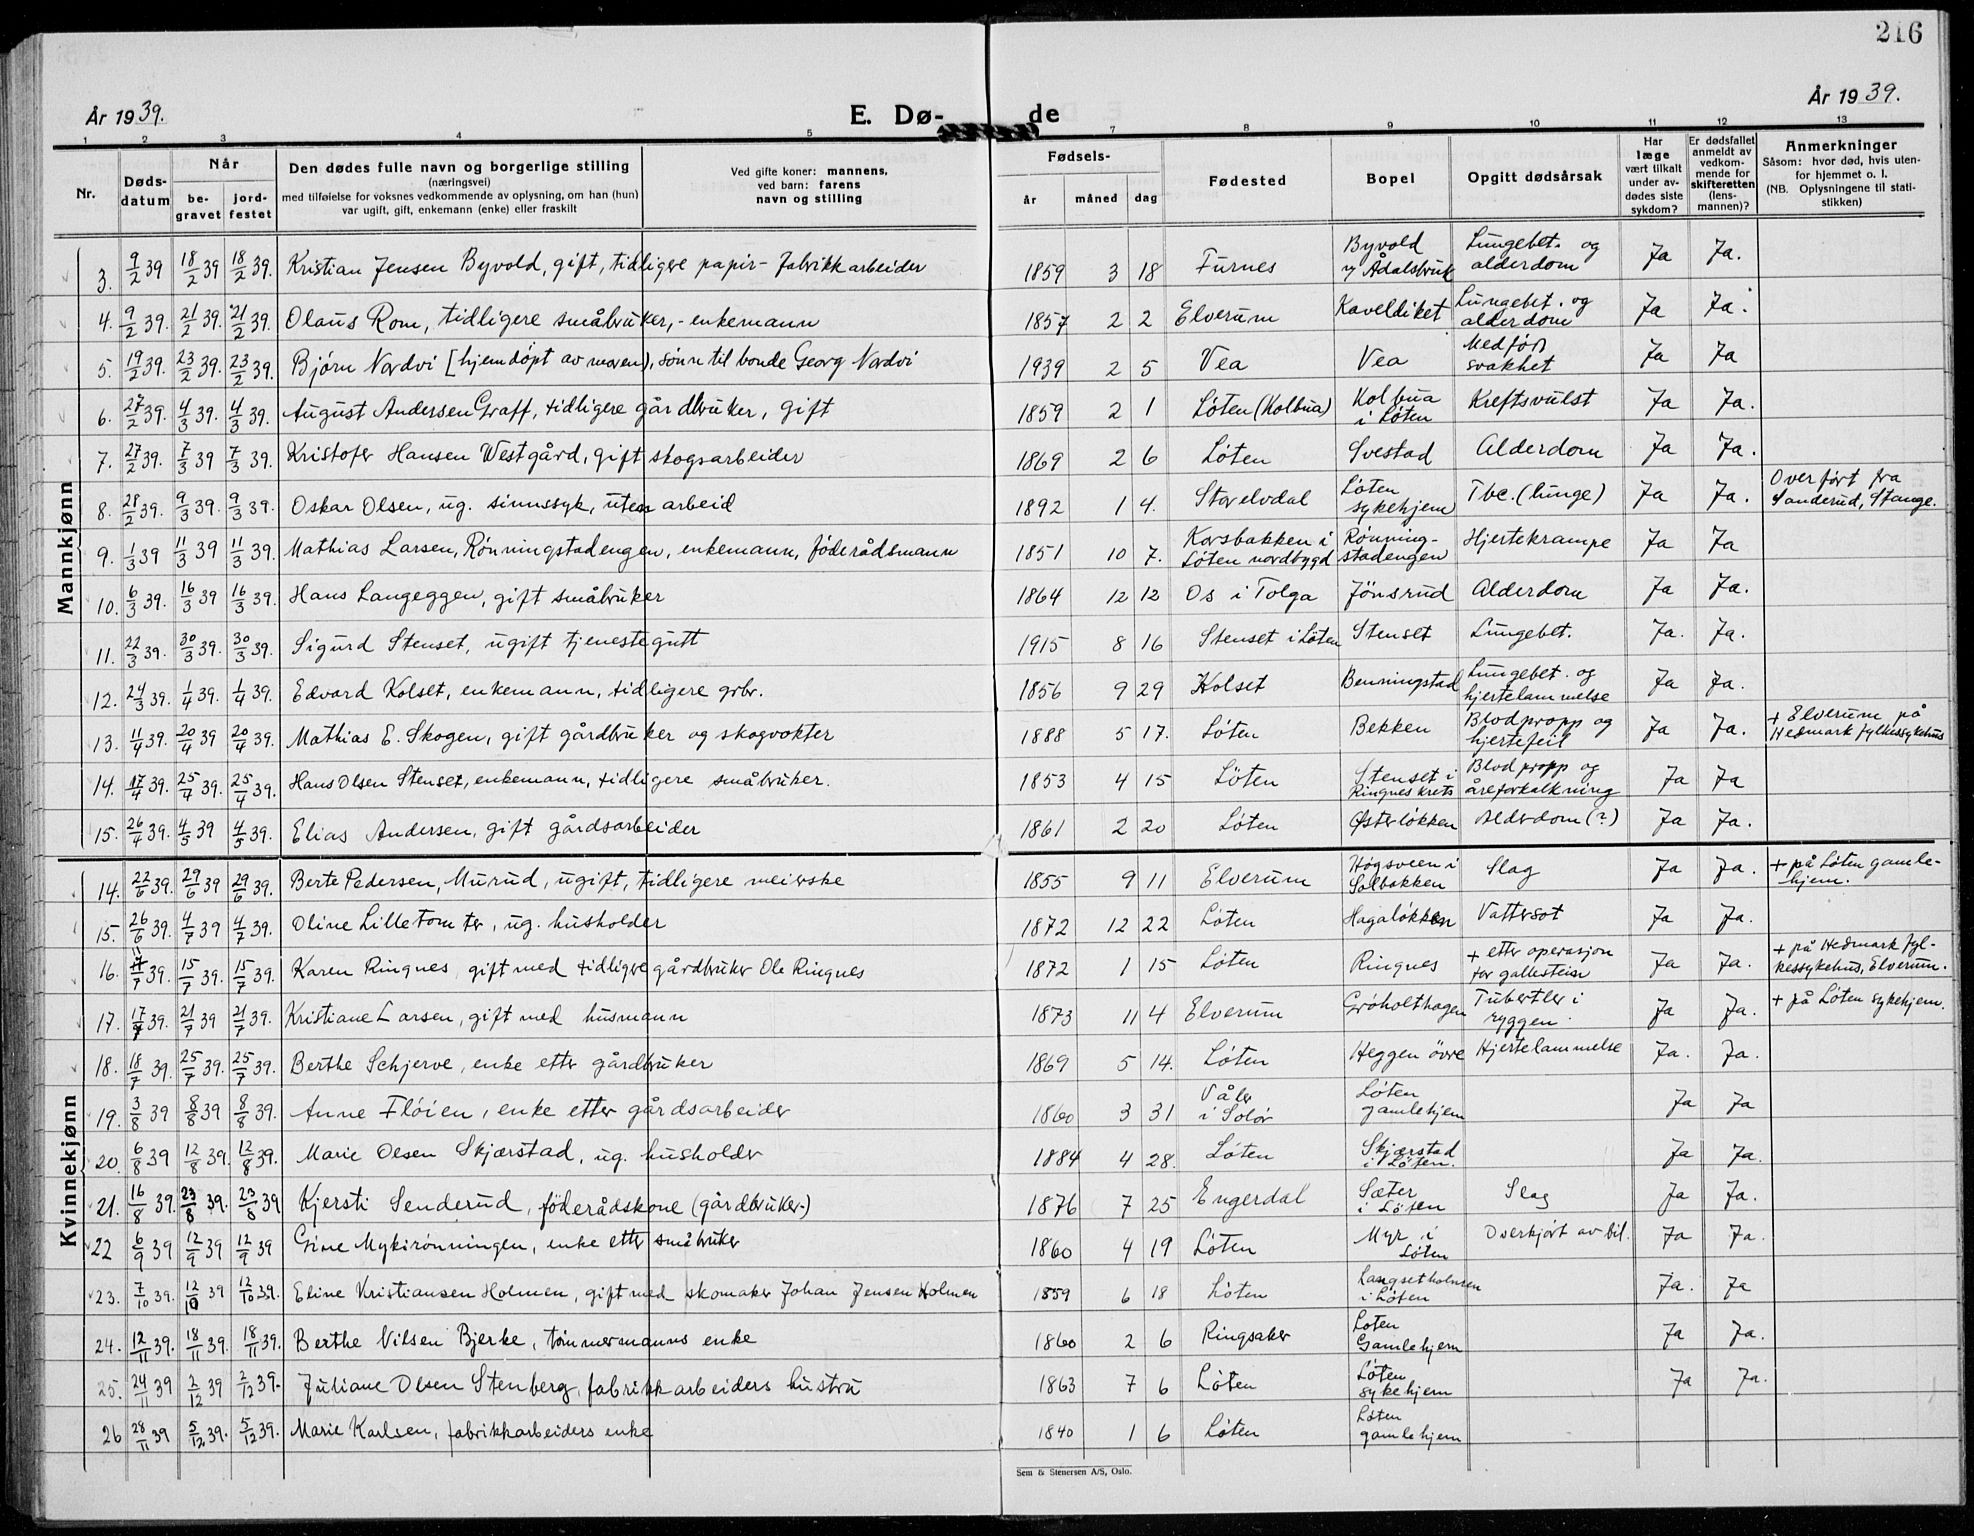 216
År 1939.
E. Dø-
de
År 1939.
1 2 3 4 5 7 8 9 10 11 12 13
Nr.
Døds-
datum
Når
be-
gravet
jord-
festet
Den dødes fulle navn og borgerlige stilling
(næringsvei)
med tilføielse for voksnes vedkommende av oplysning, om han (hun)
var ugift, gift, enkemann (enke) eller fraskilt
Ved gifte koner: mannens,
ved barn: farens
navn og stilling
Fødsels-
år måned dag
Fødested
Bopel
Opgitt dødsårsak
Har
læge
vært tilkalt
under av-
dødes siste
sykdom?
Er dødsfallet
anmeldt av
vedkom-
mende for
skifteretten
(lens-
mannen)?
Anmerkninger
Såsom: hvor død, hvis uten-
for hjemmet o. l.
(NB. Oplysningene til stati-
stikken)
Mannkjønn
3. 9/2 39 18/2 39 18/2 39. Kristian Jensen Byvold, gift, tidligere papir-fabrikkarbeider 1859 3 18 Furnes Byvold v/ Ådalsbruk Lungebet. og alderdom Ja Ja.
4. 9/2 39. 21/2 39. 21/2 39. Olaus Rom, tidligere småbruker, - enkemann 1857 2 2 Elverum Kaveldiket Lungebet. og alderdom Ja Ja.
5. 19/2 39. 23/2 39. 23/2 39. Bjørn Nordvi [hjemdöpt av moren), sönn til bonde Georg Nordvi 1939 2 5 Vea Vea Medfødt svakhet Ja Ja
6. 27/2 39. 4/3 39. 4/3 39. August Andersen Graff, tidligere gårdbruker, gift 1859 2 1 Løten (Kolbua) Kolbua i Løten Kreftsvulst Ja Ja.
7. 27/2 39. 7/3 39 7/3 39. Kristofer Hansen Westgård, gift skogsarbeider 1869 2 6 Løten Svestad Alderdom Ja Ja.
8. 28/2 39. 9/3 39. 9/3 39. Oskar Olsen, ug. sinnssyk, uten arbeid 1892 1 4. Storelvdal Løten sykehjem Tbc. (lunge) Ja Ja. Overført fra Sanderud, Stange.
9. 1/3 39 11/3 39 11/3 39. Mathias Larsen, Rønningstadengen, enkemann, föderådsmann 1851 10 7. Korsbakken i Løten nordbygd Rønning-stadengen Hjertekrampe Ja Ja
10. 6/3 39. 16/3 39 16/3 39. Hans Langeggen, gift småbruker 1864 12 12 Os i Tolga Jönsrud Alderdom Ja Ja.
11. 22/3 39. 30/3 39. 30/3 39. Sigurd Stenset, ugift tjenestegutt 1915 8 16 Stenset i Løten Stenset Lungebet. Ja. Ja.
12. 24/3 39. 1/4 39. 1/4 39. Edvard Kolset, enkemann, tidligere grbr. 1856 9 29 Kolset Benningstad Lungebet. og hjertelammelse Ja Ja.
13. 11/4 39. 20/4 39 20/4 39. Mathias E. Skogen, gift gårdbruker og skogvokter 1888 5 17. Løten Bekken Blodpropp og hjertefeil Ja Ja. + Elverum på Hedmark fylkessykehus
14. 17/4 39. 25/4 39. 25/4 39. Hans Olsen Stenset, enkemann, tidligere småbruker. 1853 4 15 Løten Stenset i Ringnes krets Blodpropp og åreforkalkning Ja Ja
15. 26/4 39. 4/5 39 4/5 39. Elias Andersen, gift gårdsarbeider 1861 2 20 Løten Østerløkken Alderdom (?) Ja Ja.
Kvinnekjønn
14. 22/6 39. 29/6 39 29/6 39. Berte Pedersen, Murud, ugift, tidligere meierske 1855 9 11 Elverum Høgsveen i Solbakken Slag Ja Ja. + på Løten gamle-hjem.
15. 26/6 39. 4/7 39 4/7 39. Oline Lilletomter, ug. husholder 1872 12 22 Løten Hagaløkken Vattersot Ja Ja.
16. 11/7 39. 15/7 39. 15/7 39. Karen Ringnes, gift med tidligere gårdbruker Ole Ringnes 1872 1 15 Løten Ringnes + etter operasjon for gallestein Ja Ja. + på Hedmark fyl-kessykehus, Elverum.
17. 17/7 39. 21/7 39 21/7 39. Kristiane Larsen, gift med husmann 1873 11 4 Elverum Grøholthagen Tubertler i ryggen Ja Ja. + på Løten sykehjem.
18. 18/7 39. 25/7 39. 25/7 39. Berthe Schjerve, enke etter gårdbruker 1869 5 14. Løten Heggen övre Hjertelammelse Ja. Ja.
19. 3/8 39 8/8 39 8/8 39. Anne Flöien, enke etter gårdsarbeider 1860 3 31 Våler i Solör Løten gamlehjem Ja Ja
20. 6/8 39 12/8 39. 12/8 39. Marie Olsen Skjærstad, ug. husholder 1884 4 28. Løten Skjærstad i Løten. Ja Ja.
21. 16/8 39. 23/8 39. 23/8 39 Kjersti Senderud, föderådskone (gårdbruker-) 1876 7 25 Engerdal Sæter i Løten Slag Ja Ja.
22 6/9 39 12/9 39 12/9 39 Gine Mykirönningen, enke etter småbruker 1860 4 19 Løten Myr i Løten Overkjørt av bil. Ja Ja.
23. 7/10 39. 12/10 39 12/10 39. Eline Kristiansen Holmen, gift med skomaker Johan Jensen Holmen 1859 6 18 Løten Langsetholmen i Løten Ja. Ja
24. 12/11 39. 18/11 39. 18/11 39. Berthe Nilsen Bjerke, tömmermanns enke 1860 2 6 Ringsaker Løten Gamlehjem Ja Ja.
25. 24/11 39 2/12 39 2/12 39. Juliane Olsen Stenberg, fabrikkarbeiders hustru 1863 7 6 Løten Løten sykehjem Ja Ja.
26 28/11 39 5/12 39. 5/12 39. Marie Karlsen, fabrikkarbeiders enke 1840 1 6 Løten Løten gamlehjem
Sem & Stenersen A/S, Oslo.